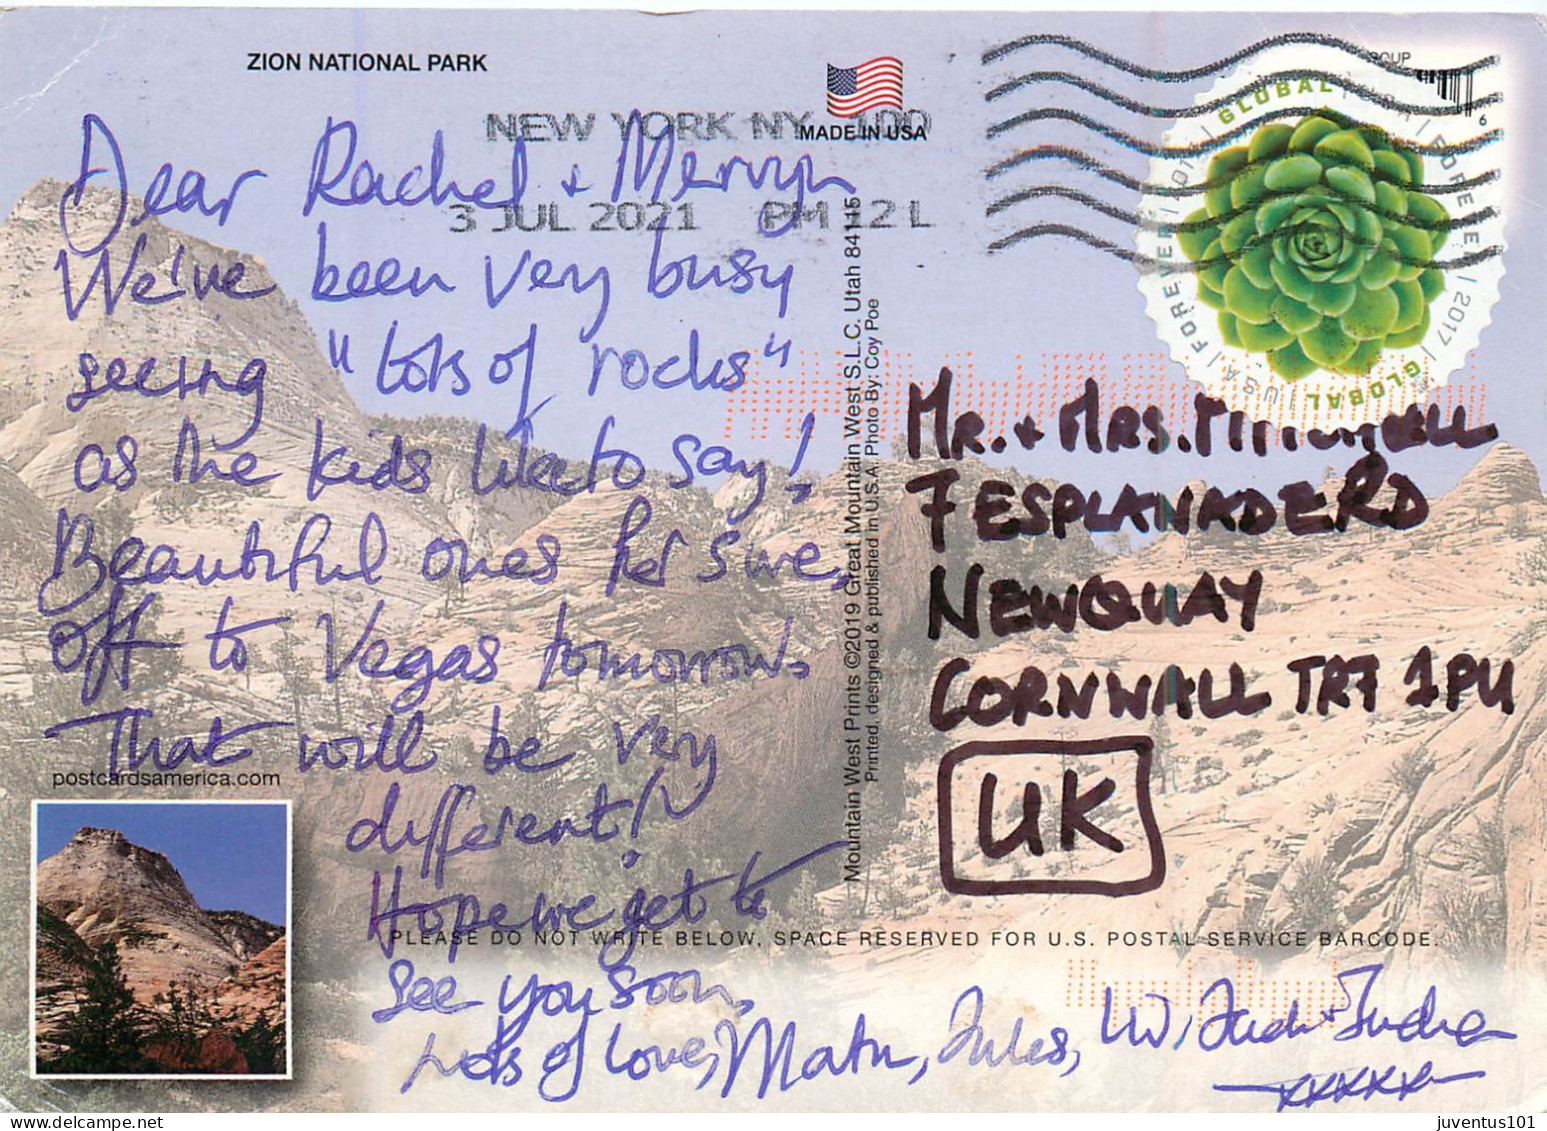 ZION NATIONAL PARK
MADE IN USA
NEW YORK NY 100
3 JUL 2021 PM 12 L
GLOBAL | USA | FOREVER | 2017 |
GLOBAL | USA | FOREVER | 2017 |
Dear Rachel + Mervyn
We've been very busy
seeing "lots of rocks"
as the kids like to say!
Beautiful ones for sure,
off to Vegas tomorrow.
That will be very
different!
Hope we get to
see you soon,
Lots of love, Jules,
xxxxx
Mountain West Prints ©2019 Great Mountain West S.L.C. Utah 84115
Printed, designed & published in U.S.A. Photo By: Coy Poe
MR. + MRS. MITCHELL
7 ESPLANADE RD
NEWQUAY
CORNWALL TR7 1PU
UK
postcardsamerica.com
PLEASE DO NOT WRITE BELOW, SPACE RESERVED FOR U.S. POSTAL SERVICE BARCODE.
juventus101